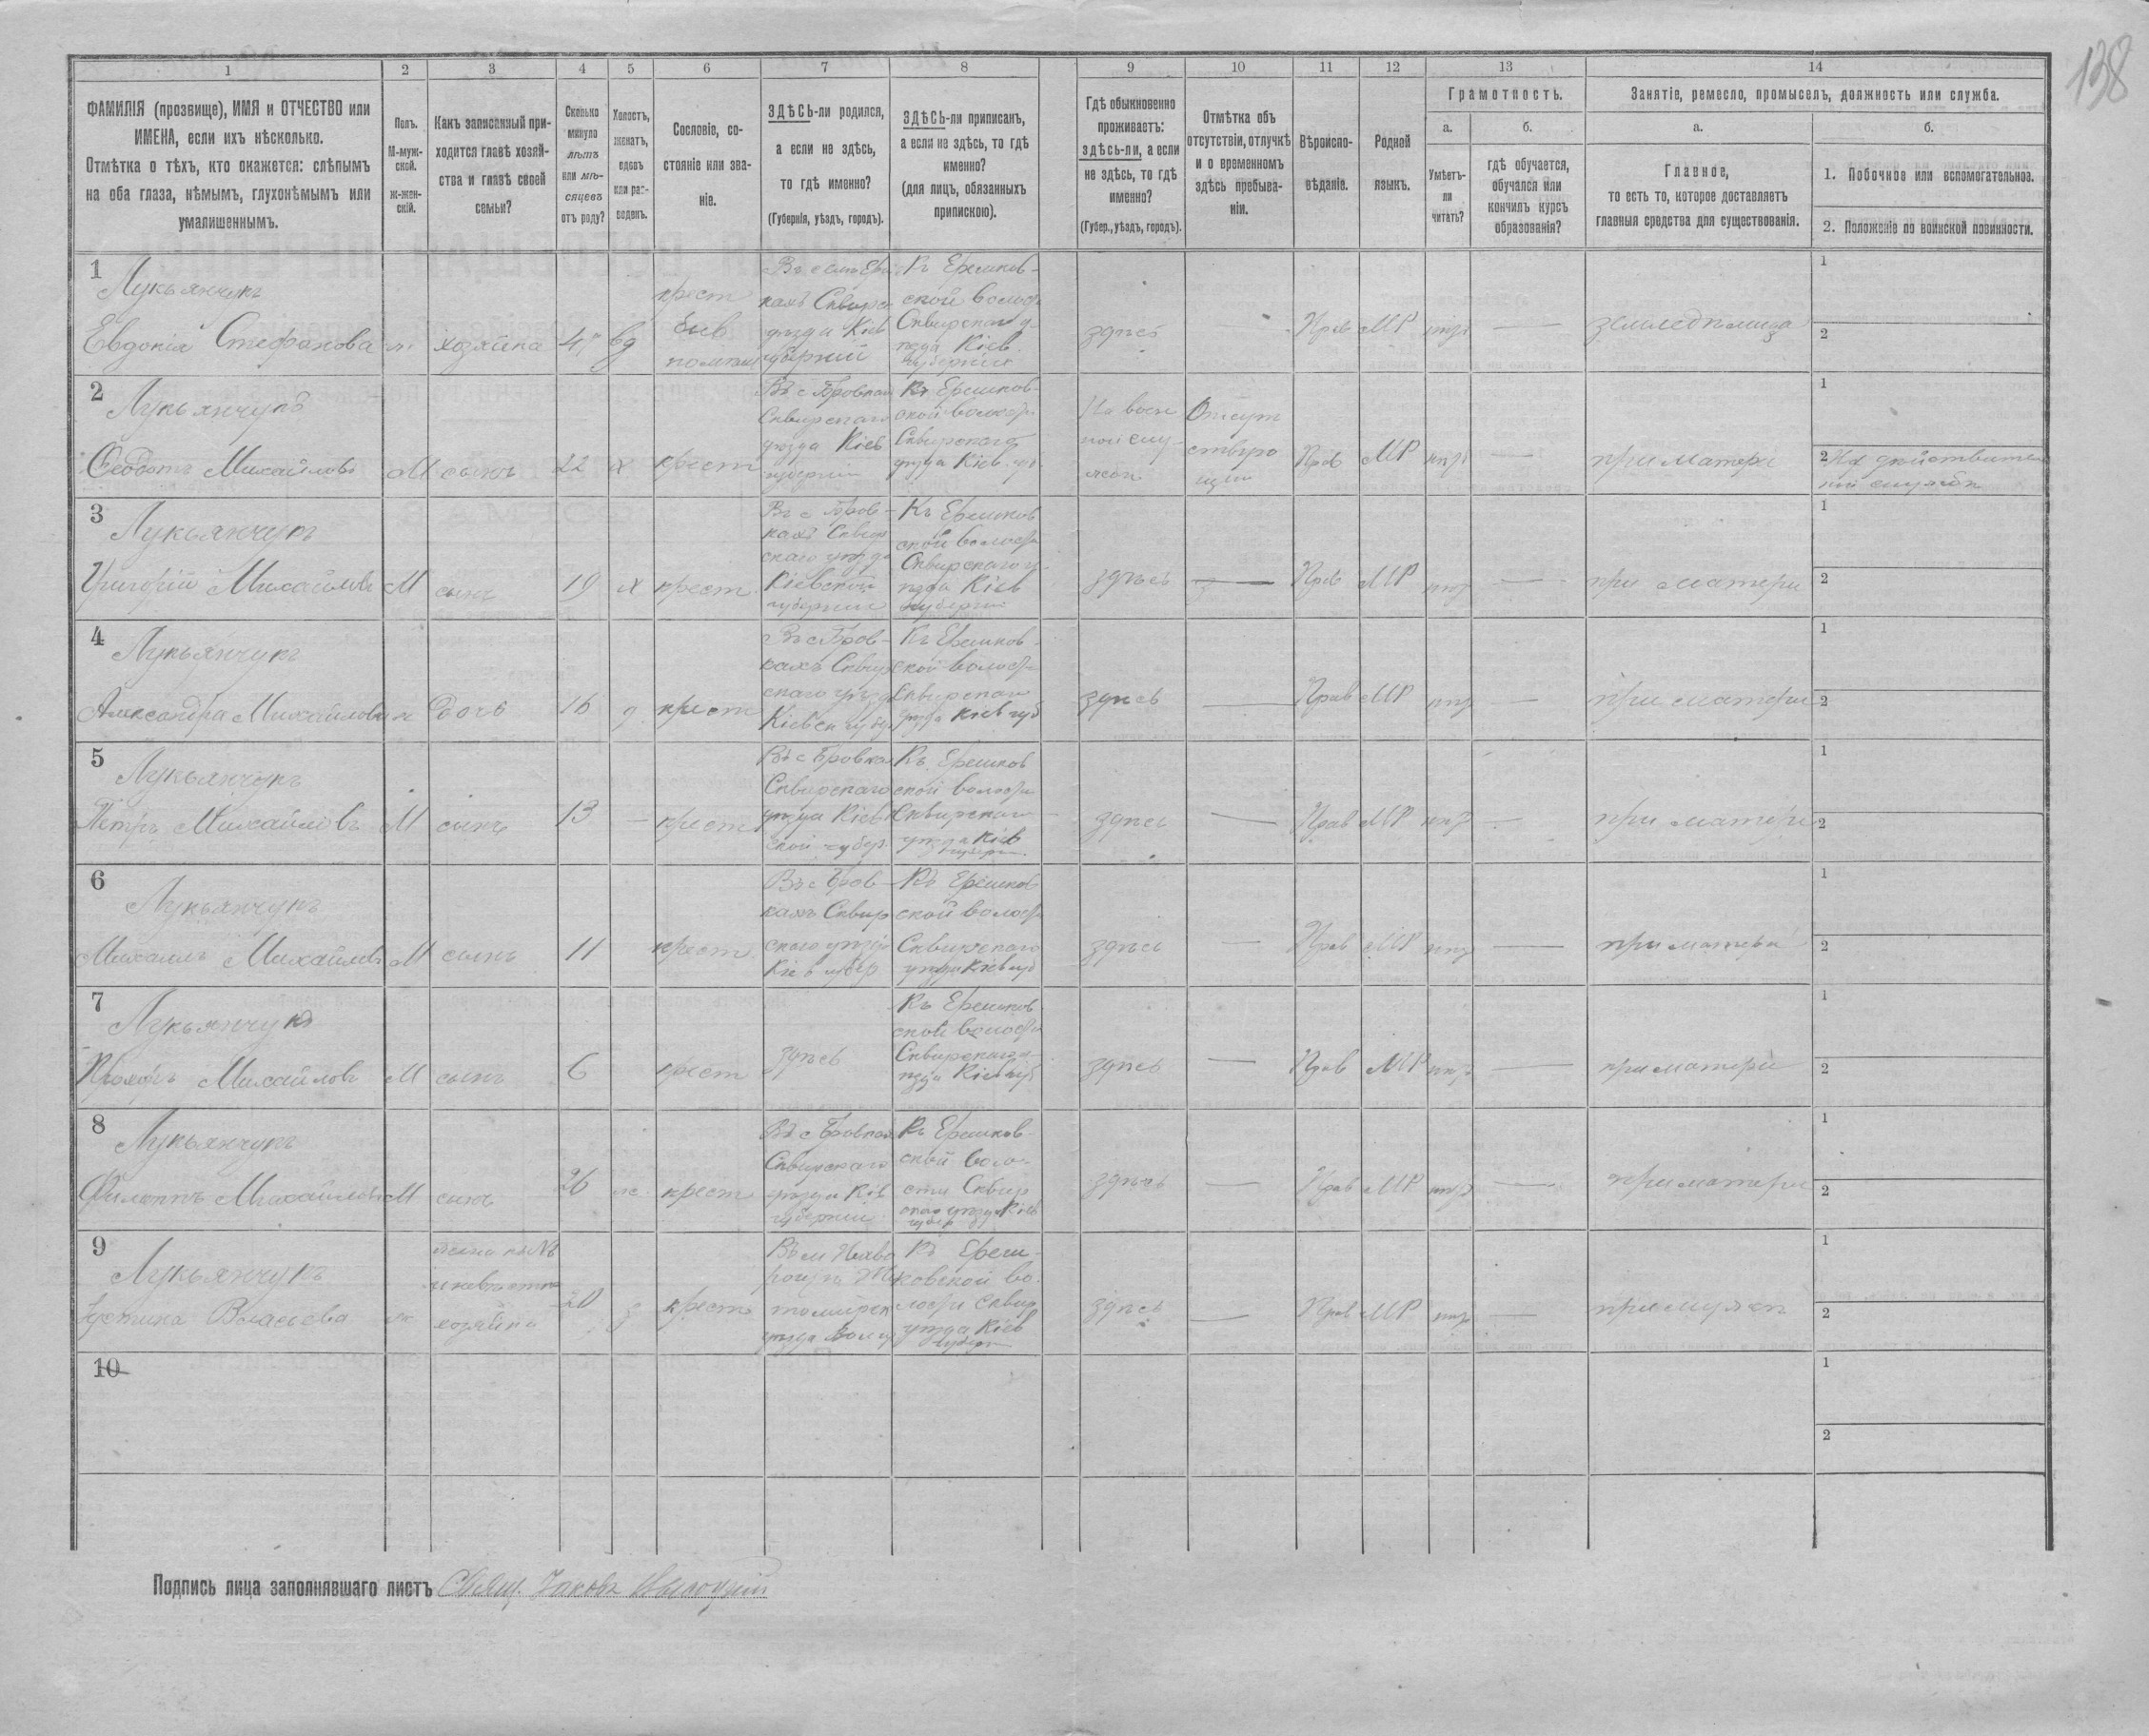 138
1 2 3 4 5 6 7 8 9 10 11 12 13 14
ФАМИЛІЯ (прозвище), ИМЯ и ОТЧЕСТВО или
ИМЕНА, если ихъ нѣсколько.
Отмѣтка о тѣхъ, кто окажется: слѣпымъ
на оба глаза, нѣмымъ, глухонѣмымъ или
умалишеннымъ.
Полъ.
М-муж-
ской.
Ж-жен-
скій.
Какъ записанный при-
ходится главѣ хозяй-
ства и главѣ своей
семьи?
Сколько
минуло
лѣтъ
или мѣ-
сяцевъ
отъ роду?
Холостъ,
женатъ,
вдовъ
или раз-
веденъ.
Сословіе, со-
стояніе или зва-
ніе.
ЗДѢСЬ-ли родился,
а если не здѣсь,
то гдѣ именно?
(Губернія, уѣздъ, городъ).
ЗДѢСЬ-ли приписанъ,
а если не здѣсь, то гдѣ
именно?
(для лицъ, обязанныхъ
припискою).
Гдѣ обыкновенно
проживаетъ:
здѣсь-ли, а если
не здѣсь, то гдѣ
именно?
(Губер., уѣздъ, городъ).
Отмѣтка объ
отсутствіи, отлучкѣ
и о временномъ
здѣсь пребыва-
ніи.
Вѣроиспо-
вѣданіе.
Родной
языкъ.
Грамотность.
а.
Умѣетъ-
ли
читать?
б.
гдѣ обучается,
обучался или
кончилъ курсъ
образованія?
Занятіе, ремесло, промыселъ, должность или служба.
а.
Главное,
то есть то, которое доставляетъ
главныя средства для существованія.
б.
1. Побочное или вспомогательное.
2. Положеніе по воинской повинности.
1
Лукьянчукъ
Евдокія Стефанова
хозяйка
вд
крест
быв
Сквирск
уѣзда Кіев
губерніи
Къ Ерешков-
ской волос
Сквирскаго у-
ѣзда Кіев
губерніи
здѣсь
—
Прав
МР
—
1
2
2
Лукьянчукъ
Ѳеодотъ Михайловъ
М
сынъ
22
х
крест
Въ с Бровках
Сквирскаго
уѣзда Кіев
губерніи
Къ Ерешков-
ской волос
Сквирскаго
уѣзда Кіев. гу
На воен
ной слу-
жбѣ
Отсут
ствую
щій
Прав
МР
—
при матери
1
2 На дѣйствител
ной службѣ
3
Лукьянчукъ
Григорій Михайловъ
М
сынъ
19
х
крест
Въ с Бров-
кахъ Сквир
скаго уѣзда
Кіевской
губерніи
Къ Ерешков
ской волос
Сквирскаго у-
ѣзда Кіев
губерніи
здѣсь
—
Прав
МР
—
при матери
1
2
4
Лукьянчукъ
Александра Михайлова
дочь
16
крест
Въ с Бров-
кахъ Сквир
скаго уѣзда
Къ Ерешков-
ской волос
Сквирскаго
уѣзда Кіев губ
здѣсь
—
Прав
МР
—
при матери
1
2
5
Лукьянчукъ
Петръ Михайловъ
М
сынъ
13
—
крест
Въ с Бровках
Сквирскаго
уѣзда Кіев
ской губер.
Къ Ерешков
ской волос
Сквирскаго
уѣзда Кіев
здѣсь
—
Прав
МР
—
при матери
1
2
6
Лукьянчукъ
Михаилъ Михайловъ
М
сынъ
11
крест
Въ с Бров-
кахъ Сквир
скаго уѣзда
Кіев губер
Къ Ерешков
ской волос
Сквирскаго
уѣзда Кіев губ
здѣсь
—
Прав
МР
—
при матери
1
2
7
Лукьянчукъ
Михайловъ
М
сынъ
6
крест
здѣсь
Къ Ерешков
ской волос
Сквирскаго у-
ѣзда Кіев губ
здѣсь
—
Прав
МР
—
при матери
1
2
8
Лукьянчукъ
Филиппъ Михайловъ
М
сынъ
26
ж.
крест
Въ с Бровках
Сквирскаго
уѣзда Кіев
губерніи
Къ Ерешков
ской воло-
сти Сквир
скаго уѣзда Кіев
губер
здѣсь
—
Прав
МР
—
при матери
1
2
9
Лукьянчукъ
Устина Власьева
жена
невѣстка
хозяйки
20
з
крест
уѣзда Волы
Къ Ереш-
ковской во-
лости Сквир
уѣзда Кіев
здѣсь
—
Прав
МР
—
при мужѣ
1
2
10
1
2
Подпись лица заполнявшаго листъ Свящ. Іаковъ